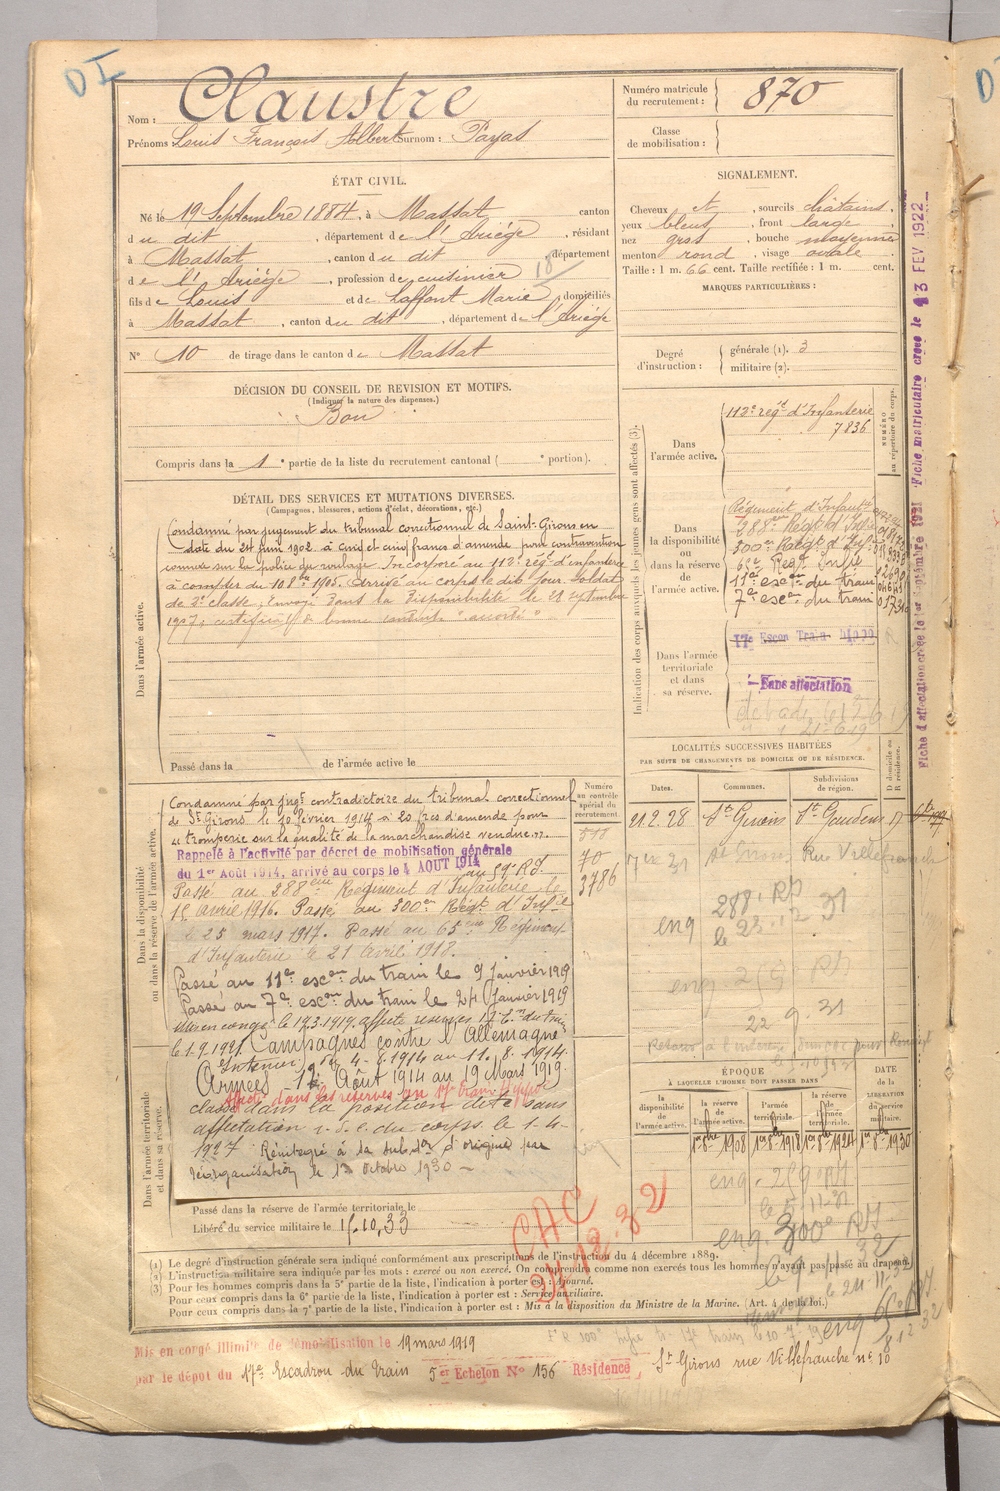 DI
Nom : Claustre
Prénoms : Louis François Albert Surnom : Payas
Numéro matricule du recrutement : 870
Classe de mobilisation :
ÉTAT CIVIL.
Né le 19 Septembre 1884, à Massat canton
du dit, département de l'Ariège, résidant
à Massat, canton du dit, département
de l'Ariège, profession de cuisinier 18
fils de Louis et de Laffont Marie, domiciliés
à Massat, canton du dit, département de l'Ariège
N° 10 de tirage dans le canton de Massat
SIGNALEMENT.
Cheveux et, sourcils châtains,
yeux bleus, front large
nez gros, bouche moyenne
menton rond, visage ovale
Taille : 1 m. 66 cent. Taille rectifiée : 1 m. cent.
MARQUES PARTICULIÈRES :
Degré d'instruction : générale (1). 3
militaire (2).
DÉCISION DU CONSEIL DE REVISION ET MOTIFS.
(Indiquer la nature des dispenses.)
Bon
Compris dans la 1e partie de la liste du recrutement cantonal ( e portion).
DÉTAIL DES SERVICES ET MUTATIONS DIVERSES.
(Campagnes, blessures, actions d'éclat, décorations, etc.)
Dans l'armée active.
Condamné par jugement du tribunal correctionnel de Saint-Girons en
date du 24 juin 1902 à cinq et cinq francs d'amende pour contravention
commise sur la police du roulage. Incorporé au 112e régt d'infanterie
à compter du 10 8bre 1905. Arrivé au corps le dit jour. Soldat
de 2e classe. Envoyé dans la disponibilité le 28 septembre
1907; certificat de bonne conduite accordé
Passé dans la de l'armée active le
Indication des corps auxquels les jeunes gens sont affectés (3).
NUMÉRO au répertoire du corps.
Dans l'armée active.
112e régt d'Infanterie
7836
Dans la disponibilité ou dans la réserve de l'armée active.
Régiment d'Infanterie
288eme Régt d'Infie
300eme Régt d'Infie
65e Régt Infie
11e escon du train
7e escon du train
Dans l'armée territoriale et dans sa réserve.
17e Escon Train
Sans affectation
Fiche d'affectation créée le 1er Septembre 1921 Fiche matriculaire créée le 13 FEV 1922
LOCALITÉS SUCCESSIVES HABITÉES
PAR SUITE DE CHANGEMENTS DE DOMICILE OU DE RÉSIDENCE.
Dates. Communes. Subdivisions de région. D domicile ou R résidence.
21.2.28 St Girons St Gaudens
St Girons Rue Villefranche
eng 288e RI
le 23.12.31
22.9.31
Dans la disponibilité ou dans la réserve de l'armée active.
Numéro au contrôle spécial du recrutement.
70
3786
Condamné par jugt contradictoire du tribunal correctionnel
de St Girons le 10 février 1914 à 20 frcs d'amende pour
tromperie sur la qualité de la marchandise vendue.
Rappelé à l'activité par décret de mobilisation générale
du 1er Août 1914, arrivé au corps le 4 AOUT 1914 au 59e R.I.
Passé au 288eme Régiment d'Infanterie le
15 avril 1916. Passé au 300eme Régt d'Infie
le 25 mars 1917. Passé au 65eme Régiment
d'Infanterie le 21 Avril 1918.
Passé au 11e escon du train le 9 Janvier 1919
Passé au 7e escon du train le 24 Janvier 1919
Mis en congé le 19.3.1919, affecté réserves 17e on du train
le 1.9.1921. Campagnes contre l'Allemagne
Intérieur du 4-8-1914 au 11-8-1914.
Armées 12 Août 1914 au 19 Mars 1919.
Affecté dans les réserves au 17e train
classé dans la position dite sans
affectation du corps le 1-4-
1927 Réintégré à la subdon d'origine par
réorganisation le 13 octobre 1930 —
Dans l'armée territoriale et dans sa réserve.
Passé dans la réserve de l'armée territoriale le
Libéré du service militaire le 15.10.33
ÉPOQUE
À LAQUELLE L'HOMME DOIT PASSER DANS
la disponibilité de l'armée active. la réserve de l'armée active. l'armée territoriale. la réserve de l'armée territoriale.
DATE de la LIBÉRATION du service militaire.
1er 8bre 1908 1er 8bre 1918 1er 8bre 1924 1er 8bre 1930
eng. 259e RI
le 5.11.31
eng. 300e RI
CAC
27.12.32
(1) Le degré d'instruction générale sera indiqué conformément aux prescriptions de l'instruction du 4 décembre 1889.
(2) L'instruction militaire sera indiquée par les mots : exercé ou non exercé. On comprendra comme non exercés tous les hommes n'ayant pas passé au drapeau.
(3) Pour les hommes compris dans la 5e partie de la liste, l'indication à porter est : Ajourné.
Pour ceux compris dans la 6e partie de la liste, l'indication à porter est : Service auxiliaire.
Pour ceux compris dans la 7e partie de la liste, l'indication à porter est : Mis à la disposition du Ministre de la Marine. (Art. 4 de la loi.)
Mis en congé illimité de démobilisation le 19 mars 1919
par le dépôt du 17e Escadron du Train 5er Echelon N° 156 Résidence St Girons rue Villefranche n° 10